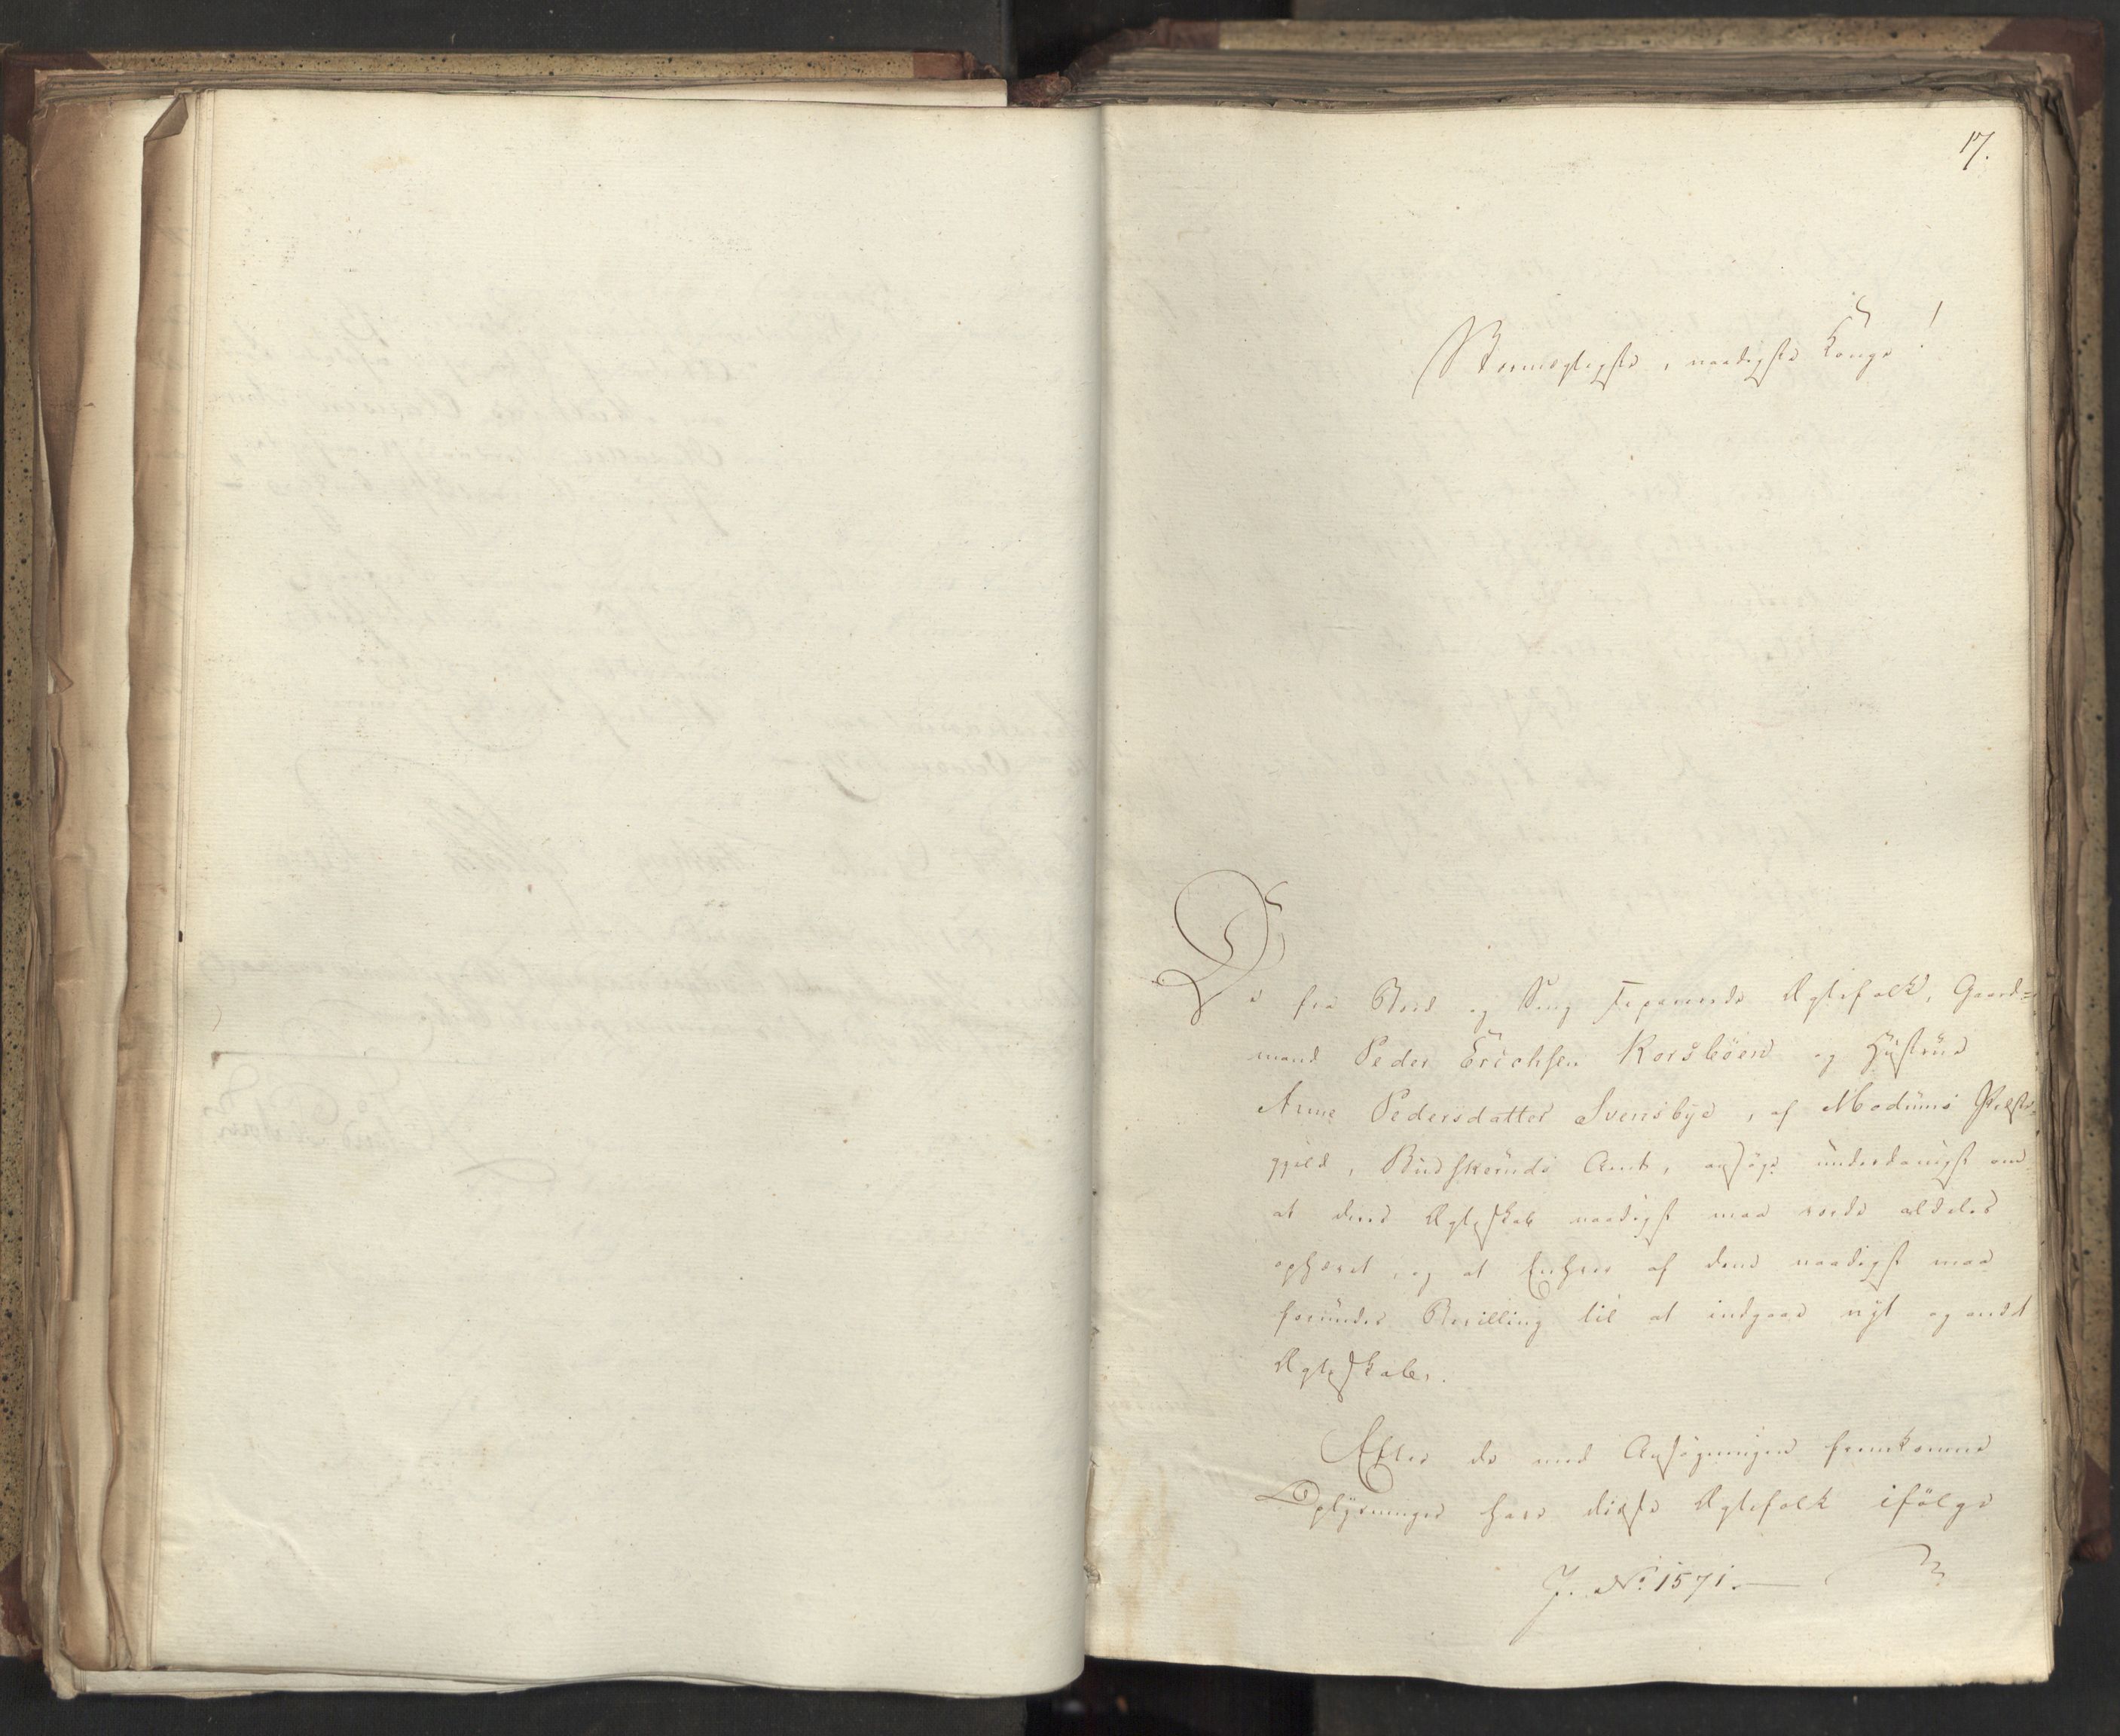 17.
Stormægtigste, naadigste Konge!
De fra Bord og Seng separerede Ægtefolk, Gaard=
mand Peder Erichsen Korsböen og Hustrue
Anne Pedersdatter Svensbye, af Modums Præste=
gjeld, Budskeruds Amt, ansöge underdanigst om
at deres Ægteskab naadigst maa vorde aldeles
ophævet, og at Enhver af dem naadigst maa
forundes Bevilling til at indgaae nyt og andet
Ægteskab.
Efter de med Ansögningen fremkomne
Oplysninger have disse Ægtefolk ifölge
J. No. 1571.